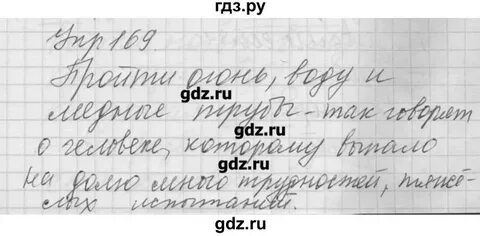 гдз.ру
Упр 169
Пройти огонь, воду и
медные трубы - так говорят
о человеке, которому выпало
на долю много трудностей, тяжё-
лых испытаний.
гдз.ру
гдз.ру
гдз.ру
гдз.ру
гдз.ру